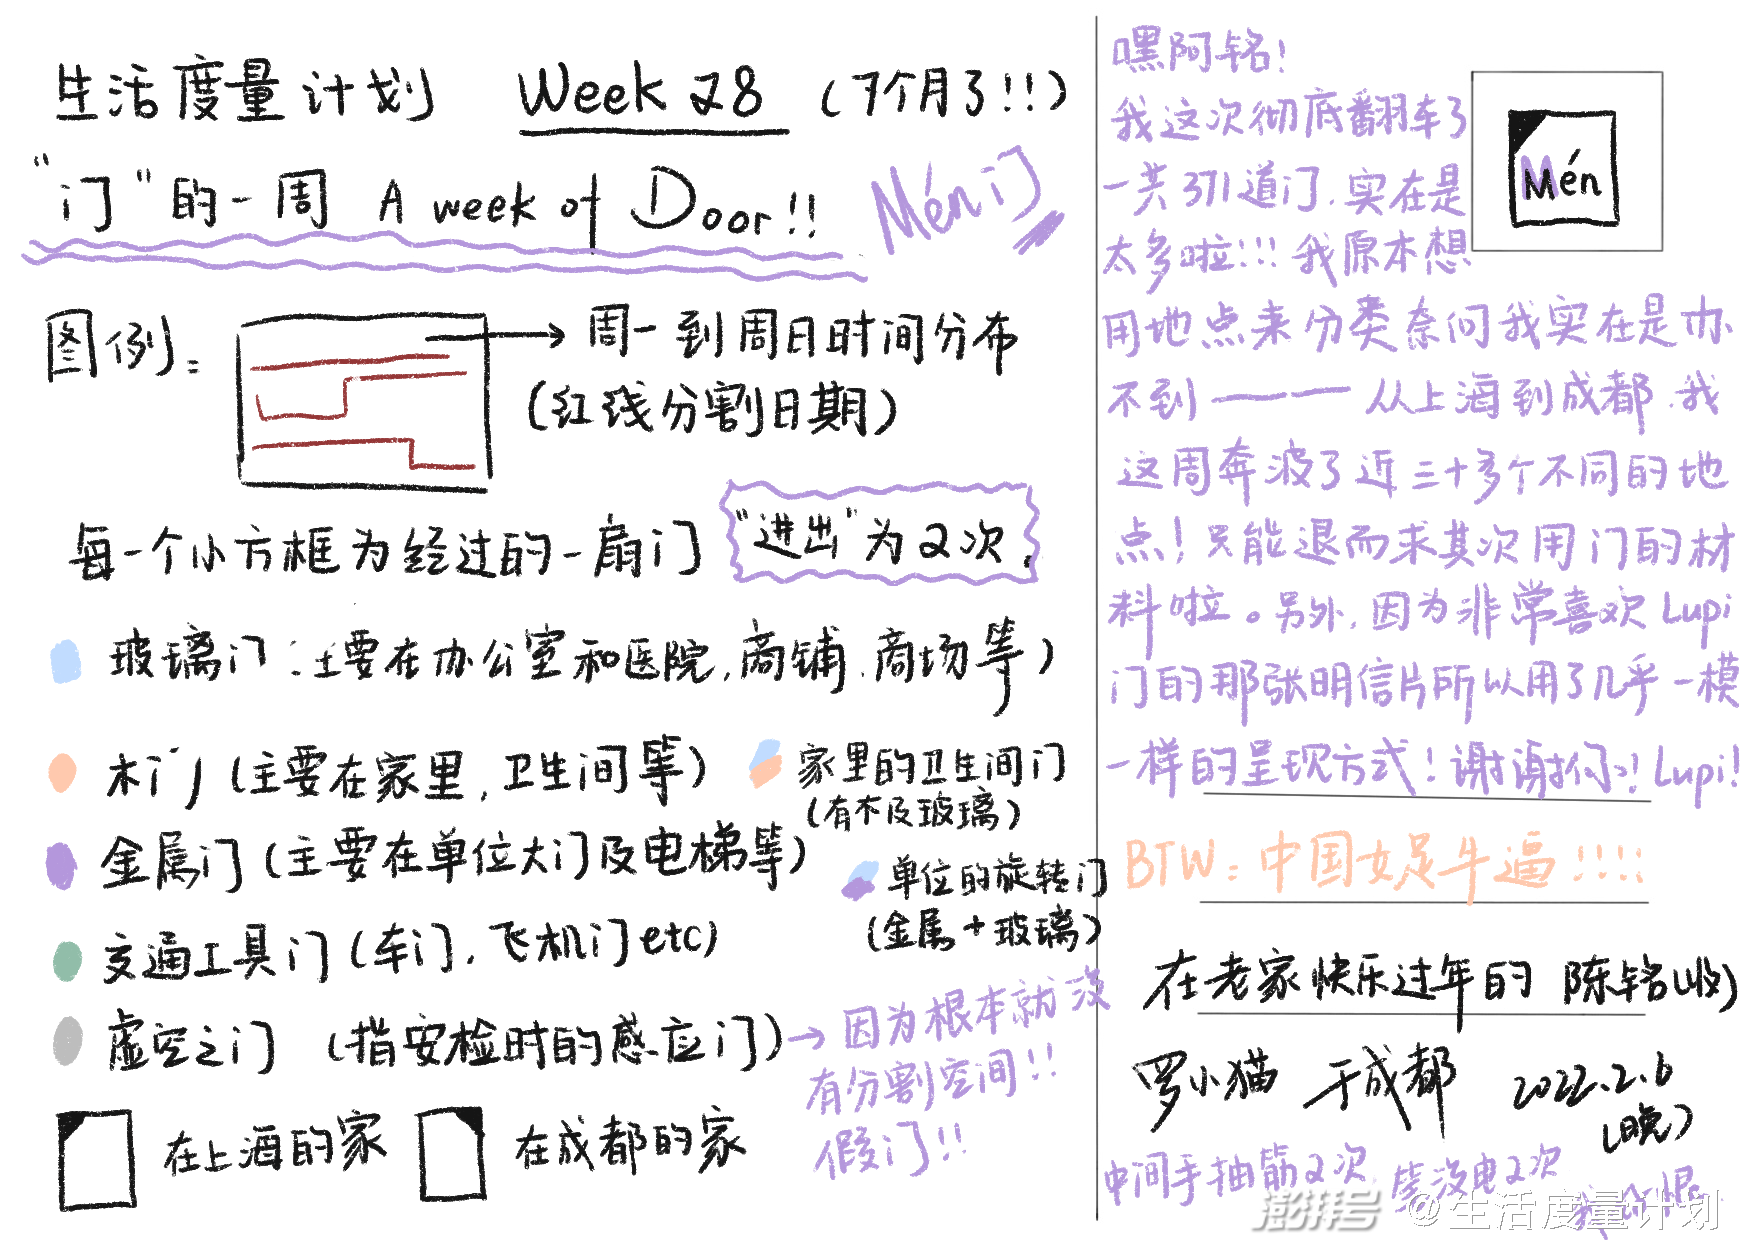 生活度量计划 Week 28 (7个月了!!!)
"门"的一周 A week of Door!!
Mén 门
图例:
周一到周日时间分布
(红线分割日期)
每一个小方框为经过的一扇门
"进出"为2次.
玻璃门:主要在办公室和医院,商铺.商场等)
木门(主要在家里,卫生间等)
家里的卫生间门
(有木及玻璃)
金属门(主要在单位大门及电梯等)
单位的旋转门
(金属+玻璃)
交通工具门(车门,飞机门etc)
虚空之门 (指安检时的感应门)
→因为根本就没
有分割空间!!
假门!!
在上海的家
在成都的家
嘿阿铭!
我这次彻底翻车了
一共371道门.实在是
太多啦!!!我原本想
Mén
用地点来分类奈何我实在是办
不到———从上海到成都.我
这周奔波了近三十多个不同的地
点!只能退而求其次用门的材
料啦。另外,因为非常喜欢Lupi
门的那张明信片所以用了几乎一模
一样的呈现方式!谢谢你!Lupi!
BTW:中国女足牛逼!!!!
在老家快乐过年的 陈铭(收)
罗小猫 于成都 2022.2.6
(晚)
中间手抽筋2次 笔没电2次
澎湃号 @生活度量计划